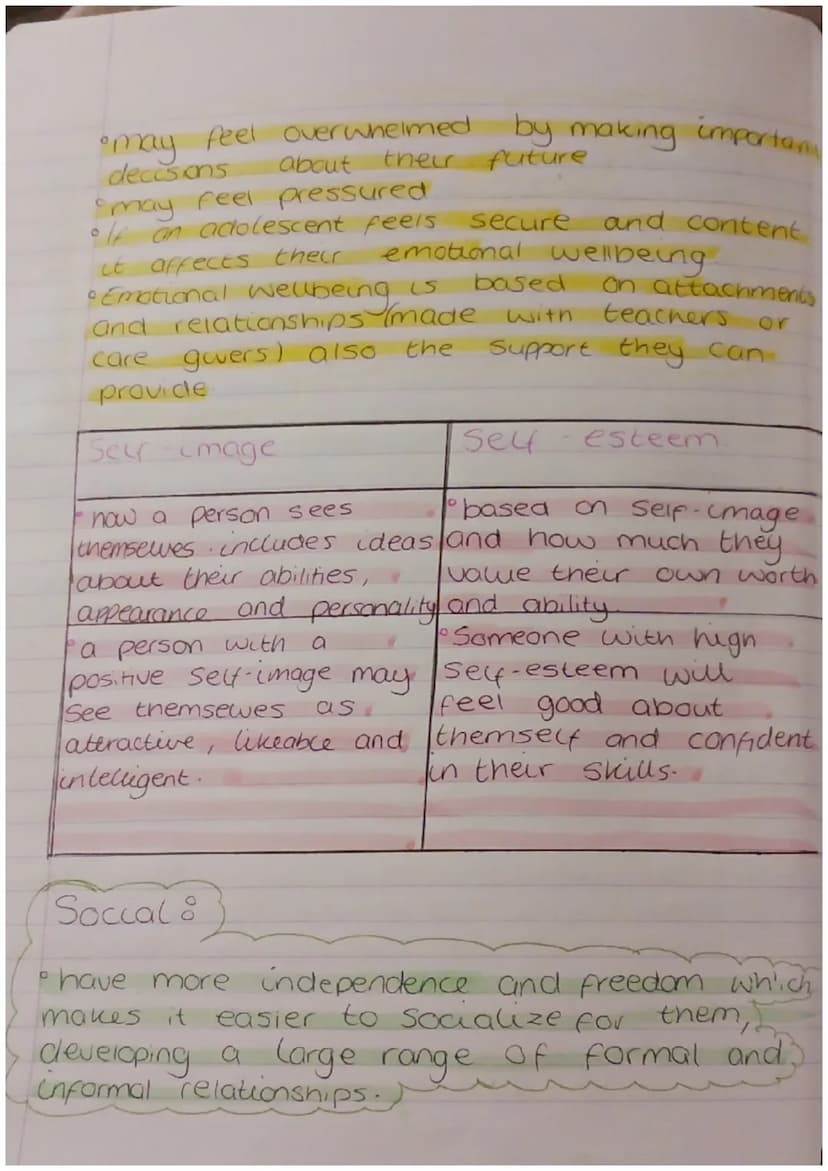 °may feel overwhelmed by making important
decisons about their future
°may feel pressured
°If an adolescent feels secure and content
it affects their emotional wellbeing
°Emotional wellbeing is based on attachments
and relationships (made with teachers or
care givers) also the support they can
provide
Self-image
°how a person sees
themselves. includes ideas
about their abilities,
appearance and personality
°a person with a
positive self-image may
see themselves as
attractive, likeable and
intelligent.
Self-esteem
°based on self-image
and how much they
value their own worth
and ability
°Someone with high
self-esteem will
feel good about
themself and confident
in their skills.
Social:
°have more independence and freedom which
makes it easier to socialize for them,
developing a large range of formal and
informal relationships.